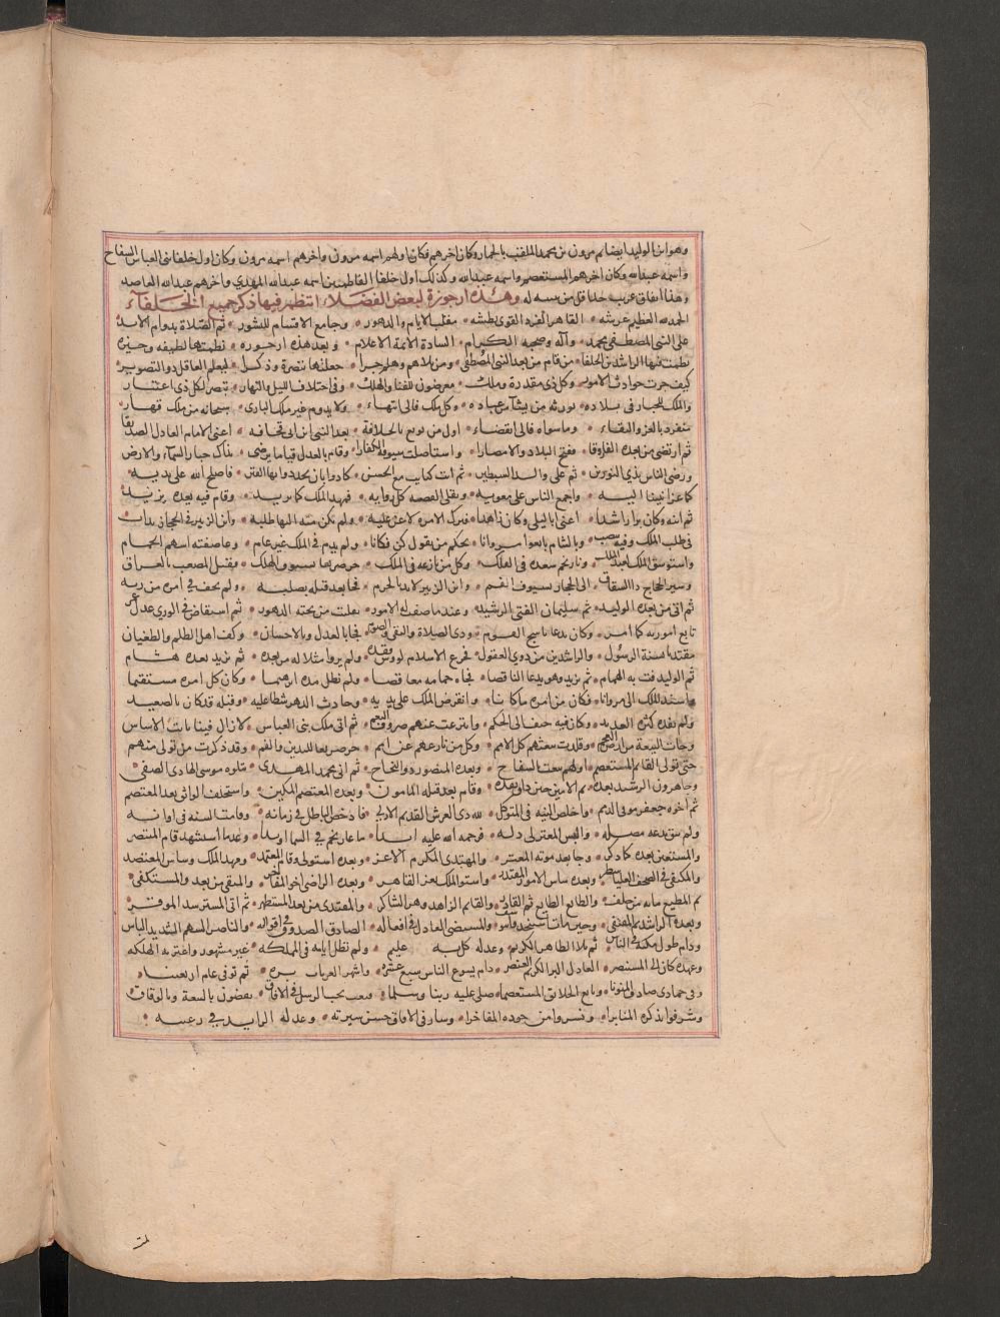 وهو ابن الوليد ايضا ثم مرون بن محمد الملقب بالحمار وكان اخرهم فكان اولهم اسمه مرون واخرهم اسمه مرون وكان اول خلفا بنى العباس السفاح
واسمه عبدالله وكان اخرهم المستعصم واسمه عبدالله وكذلك اول خلفا الفاطمين اسمه عبدالله المهدي واخرهم عبدالله العاضد
وهذا اتفاق غريب جدا قل من يسه له وهذه ارجوزة لبعض الفضلاء انتظم فيها ذكر جميع الخلفاء
الحمد لله العظيم عرشه • القاهر الفرد القوى بطشه • مقلب الايام والدهور • وجامع الاقسام للنشور • ثم الصلاة بدوام الابد
على النبى المصطفى محمد • واله وصحبه الكرام • السادة الائمة الاعلام • وبعد هذه ارجوزه • نظمتها لطيفه وجيزه
نظمت فيها الراشدين الخلفا • من قام من بعد النبى المصطفى • ومن تلاهم وهلم جرا • جعلتها تبصرة وذكرا • ليعلم العاقل ذو التصوير
كيف جرت حوادث الامور • وكل ذى مقدرة وملك • معرضون للفنا والهلك • وفى اختلاف الليل والنهار • تبصر لكل ذى اعتبار
والملك للجبار فى بلاده • يورثه من يشا من عباده • وكل ملك فالى انتهاء • ولا يدوم غير ملك البارى • سبحانه من ملك قهار
منفرد بالعز والبقاء • وما سواه فالى انقضاء • اول من بويع بالخلافة • بعد النبى ابن ابى قحافه • اعنى الامام العادل الصديقا
ثم ارتضى من بعده الفاروقا • ففتح البلاد والامصارا • واستاصلت سيوفه الكفارا • وقام بالعدل قياما يرضى • بذاك جبار السماء والارض
ورضى الناس بذي النورين • ثم على والد السبطين • ثم ات كتايب مع الحسن • كادوا بان يجددوا بها الفتن • فاصلح الله على يديه
كما عزا نبينا اليه • واجمع الناس على معويه • ونقل القصه كل راويه • فمهد الملك كما يريد • وقام فيه بعده يزيد
ثم ابنه وكان برا راشدا • اعنى ابا ليلى وكان زاهدا • فترك الامرة لا عن غلبه • ولم تكن منه اليها طلبه • وابن الزبير فى الحجاز يداب
فى طلب الملك وفيه ينصب • وبالشام بايعوا مروانا • بحكم من يقول كن فكانا • ولم يدم فى الملك غير عام • وعاقصته اسهم الحمام
واستوسق الملك لعبد الملك • ونار نجم سعده فى الفلك • وكل من نازعه فى الملك • خر صريعا بسيوف الهلك • وقتل المصعب بالعراق
وسير الحجاج ذا الشقاق • الى الحجاز بسيوف النقم • وابن الزبير لايذ بالحرم • فجا بعد قتله بصلبه • ولم يخف فى امره من ربه
ثم اتى من بعده الوليد • ثم سليمان الفتى الرشيد • وعندما صفت له الامور • تقلبت من تحته الدهور • ثم استفاض فى الورى عدل عمر
تابع امر ربه كما امر • وكان يدعا باشج القوم • وذى الصلاة والتقى والصوم • فجا بالعدل وبالاحسان • وكف اهل الظلم والطغيان
مقتديا بسنة الرسول • والراشدين من ذوي العقول • فجرع الاسلام كوس فقده • ولم يروا مثلا له من بعده • ثم يزيد بعده هشام
ثم الوليد فت به الهمام • ثم يزيد وهو يدعا الناقصا • فجاءه حمامه معاقصا • ولم تطل مدة ابرهيما • وكان كل امره مستقيما
واسند الملك الى مروانا • فكان من امره ما كانا • وانقرض الملك على يديه • وحادث الدهر سطا عليه • وقتله قد كان بالصعيد
ولم تفده كثرة العديد • وكان فيه حتف ال الحكم • وانتزعت عنهم صروف النعم • ثم اتى ملك بنى العباس • لا زال فينا ثابت الاساس
وجات البيعة من ارض العجم • وقلدت بيعتهم كل الامم • وكل من نازعهم من امم • خر صريعا لليدين والفم • وقد ذكرت من تولى منهم
حتى تولى القائم المستعصم • اولهم ينعت السفاح • وبعده المنصور ذو النجاح • ثم اتى محمد المهدى • يتلوه موسى الهادى الصفى
وجا هرون الرشيد بعده • ثم الامين حين ذاق فقده • وقام بعد قتله المامون • وبعده المعتصم المكين • واستخلف الواثق بعد المعتصم
ثم اخوه جعفر موفى الذمم • واخلص النيه فى المتوكل • لله ذى العرش القديم الازلى • فادحض الباطل فى زمانه • وقامت السنه فى اوانه
ولم يبق بدعه مضله • والبس المعتزلى ذله • فرحمة الله عليه ابدا • ما غار نجم في السما او بدا • وعندما استشهد قام المنتصر
والمستعين بعده كما ذكر • وجا بعد موته المعتز • والمهتدى المكرم الاعز • وبعده استولى وقام المعتمد • ومهد الملك وساس المعتضد
والمكتفى فى الصحف العليا سطر • وبعده ساس الامور المقتدر • واستو الملك بعز القاهر • وبعده الراضى اخو المفاخر • والمتقى من بعد والمستكفى
ثم المطيع ما به من خلف • والطائع الطايع ثم القادر • والقائم الزاهد وهو الشاكر • والمقتدى من بعد المستظهر • ثم اتى المسترشد الموقر
وبعده الراشد ثم المقتفى • وحين مات استنجد • والمستضى العادل فى افعاله • الصادق الصدوق فى اقواله • والناصر الشهم الشديد الباس
ودام طول مكثه فى الناس • ثم تلا الظاهر الكريم • وعدله كل به عليم • ولم تطل ايامه فى المملكه • غير شهور واعترته الهلكه
وعهده كان الى المستنصر • العادل البر الكريم العنصر • دام يسوس الناس سبع عشره • واشهر العربات بره • ثم توفى عام اربعينا
وفى جمادى صادق المنونا • وبايع الخلايق المستعصما • صلى عليه ربنا وسلما • وبعث نجب الرسل فى الافاق • يقضون بالبيعة وبالوفاق
وشرفوا بذكره المنابرا • ونشروا من جوده المفاخرا • وسار فى الافاق حسن سيرته • وعدله الزايد في رعيته •